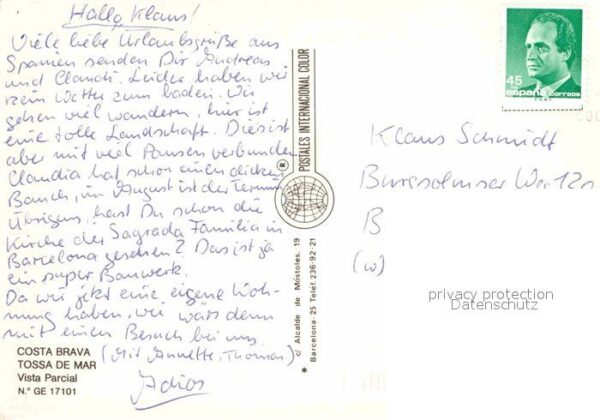 Hallo Klaus!
Viele liebe Urlaubsgrüße aus
Spanien senden Dir Andreas
und Claudi. Leider haben wir
kein Wetter zum baden. Wir
gehen viel wandern, hier ist
eine tolle Landschaft. Dies ist
aber mit viel Pausen verbunden
Claudia hat schon einen dicken
Bauch, im August ist der Termin
Übrigens, hast Du schon die
Kirche der Sagrada Familia in
Barcelona gesehen? Das ist ja
ein super Bauwerk.
Da wir jetzt eine eigene Woh-
nung haben, wie wärs denn
mit einen Besuch bei uns
(Mit Annette, Thomas)
Adios
COSTA BRAVA
TOSSA DE MAR
Vista Parcial
N.° GE 17101
POSTALES INTERNACIONAL COLOR
®
* c/ Alcalde de Móstoles, 19
Barcelona - 25 Teléf. 236-92-21
45
españa correos
Klaus Schmidt
12a
B
(W)
privacy protection
Datenschutz